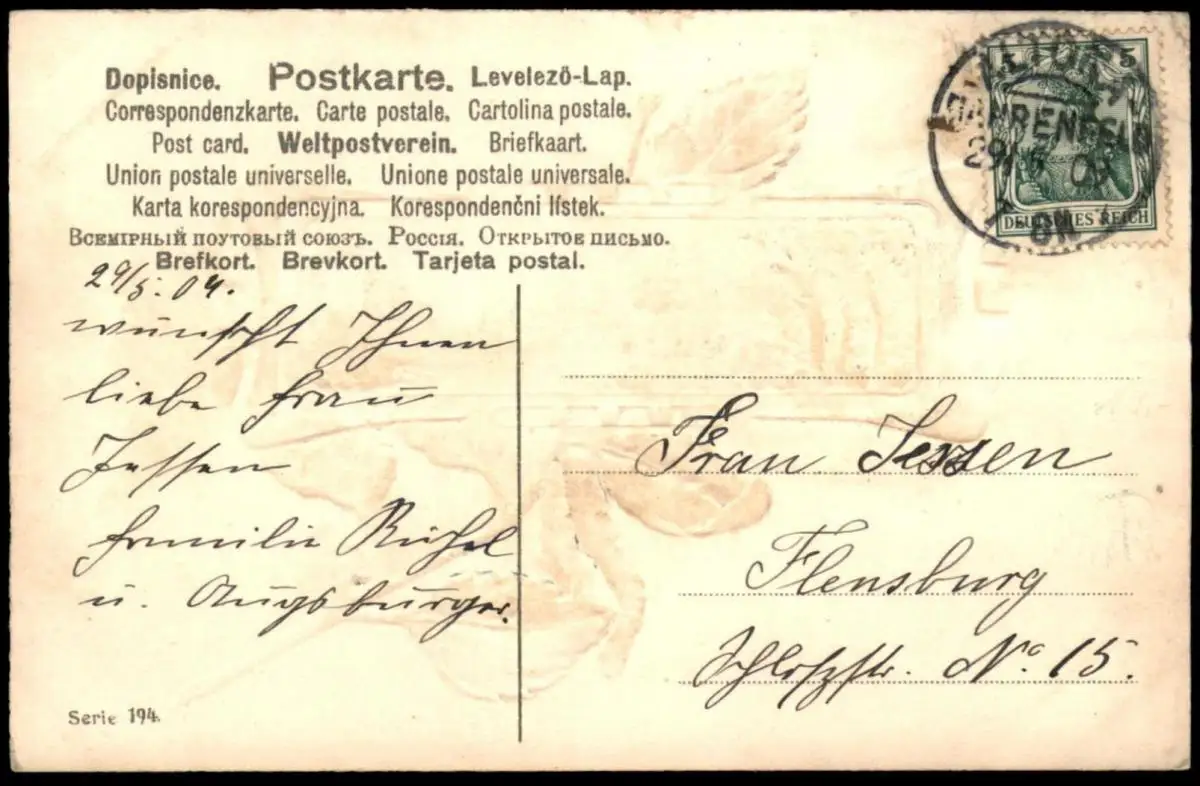 Dopisnice. Postkarte. Levelező-Lap.
Correspondenzkarte. Carte postale. Cartolina postale.
Post card. Weltpostverein. Briefkaart.
Union postale universelle. Unione postale universale.
Karta korespondencyjna. Korespondenčni lístek.
Всемірный поутовый союзъ. Россія. Открытое письмо.
Brefkort. Brevkort. Tarjeta postal.
29/5. 04.
wünscht Ihnen
liebe Frau
Jessen
Familie
u. Augsburger.
Serie 194.
5 5
DEUTSCHES REICH
Frau Jessen
Flensburg
Schloßstr. No. 15.